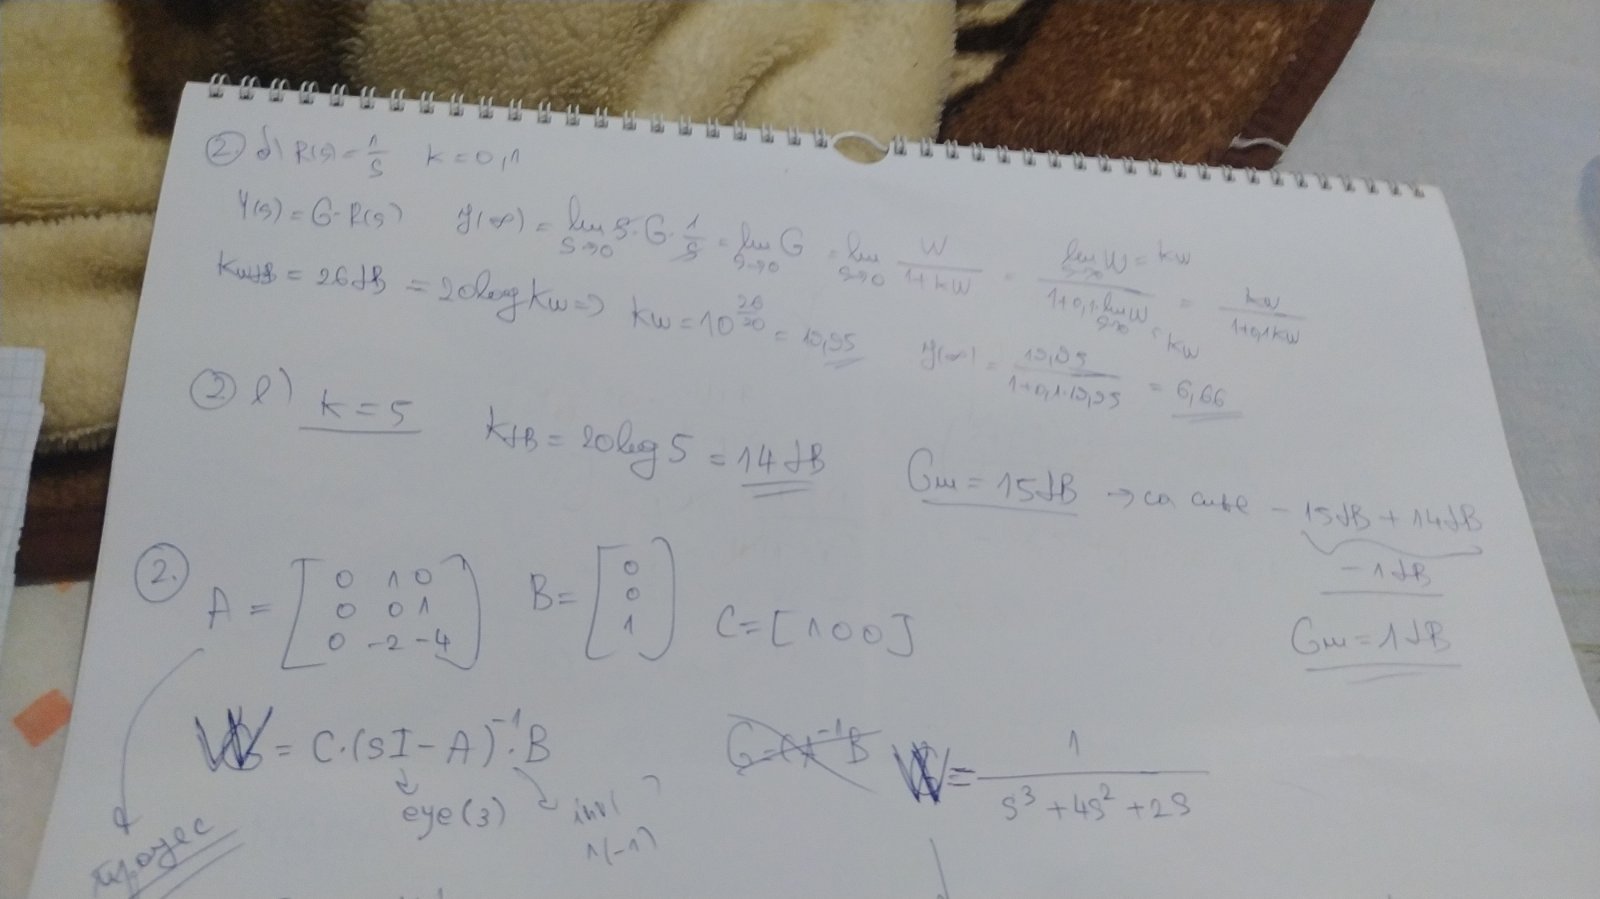 ② d) R(s) = 1/s   k = 0,1
Y(s) = G·R(s)   y(∞) = lim s→0 s·G·1/s = lim s→0 G = lim s→0 W/(1+kW) = lim s→0 W = kw / (1+0,1·lim s→0 W = kw) = kw/(1+0,1kw)
kwdB = 26dB = 20log kw ⇒ kw = 10^(26/20) = 19,95   y(∞) = 19,95/(1+0,1·19,95) = 6,66
② e) k = 5   kdB = 20log5 = 14dB   Gm = 15dB → -15dB + 14dB
-1dB
Gm = 1dB
②. A = [0 1 0; 0 0 1; 0 -2 -4]   B = [0; 0; 1]   C = [1 0 0]
W = C·(sI-A)^-1·B   W = 1/(s³+4s²+2s)
eye(3)   inv(
^(-1)